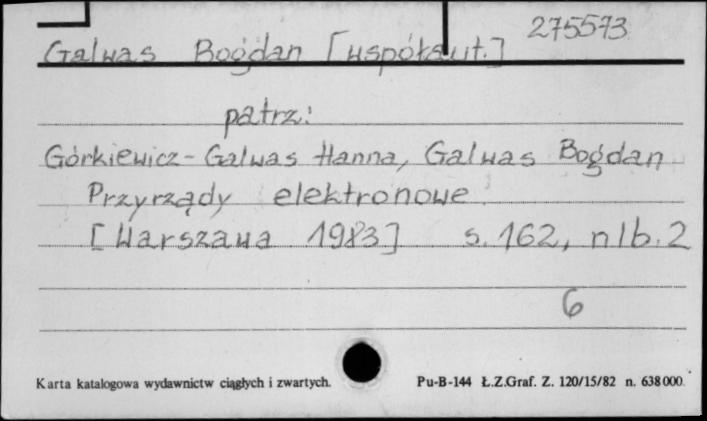 275573
Galwas Bogdan [współaut.]
patrz:
Górkiewicz-Galwas Hanna, Galwas Bogdan
Przyrządy elektronowe
[Warszawa 1983] s. 162, nlb. 2
6
Karta katalogowa wydawnictw ciągłych i zwartych. Pu-B-144 Ł.Z.Graf. Z. 120/15/82 n. 638000.